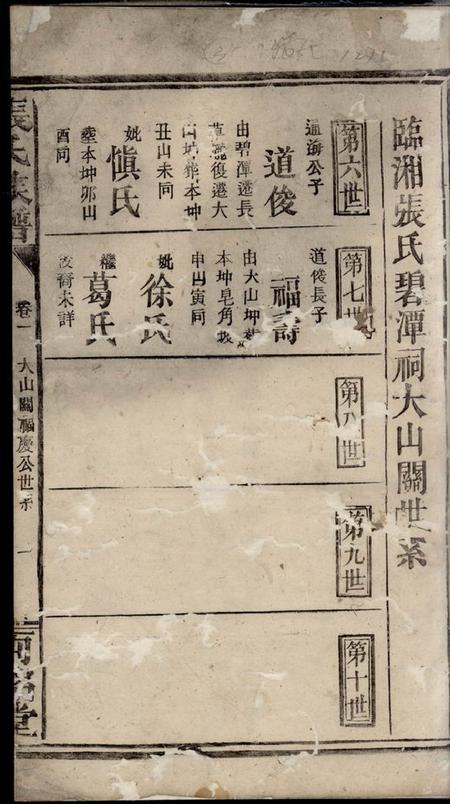 臨湘張氏碧潭祠大山關世系
第六世
通海公子
道俊
由碧潭遷長
復遷大
山坤葬本坤
丑山未同
妣慎氏
葬本坤卯山
酉同
第七世
道俊長子
福壽
由大山坤
本坤皂角坡
申山寅同
妣徐氏
繼葛氏
後裔未詳
第八世
第九世
第十世
張氏族譜
卷一
大山關福慶公世系
一
堂